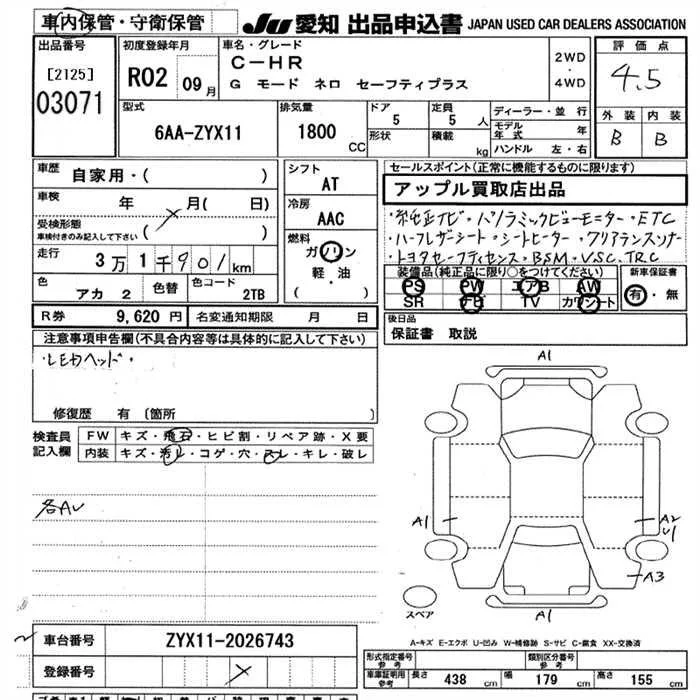 車内保管・守衛保管
JU 愛知 出品申込書 JAPAN USED CAR DEALERS ASSOCIATION
出品番号
[2125]
03071
初度登録年月
R02 09月
車名・グレード
C-HR
G モード ネロ セーフティプラス
2WD
・
4WD
評価点
4.5
外装 内装
B B
型式
6AA-ZYX11
排気量
1800 CC
ドア
5
形状
定員
5 人
積載
kg
ディーラー・並行
モデル年式 年
ハンドル 左・右
車歴
自家用・( )
車検
年 月( 日)
受検形態
車検付きのみ記入して下さい ( )
走行
3万1千901km
色
アカ 2
色替
色コード
2TB
シフト
AT
冷房
AAC
燃料
ガソリン
軽・油
( )
R券 9,620 円 名変通知期限 月 日
セールスポイント(正常に機能するものに限り)
アップル買取店出品
・純正ナビ・パノラミックビューモニター・ETC
・ハーフレザーシート・シートヒーター・クリアランスソナー
・トヨタセーフティセンス・BSM・VSC・TRC
装備品(純正品に限り○をつけてください)
PS PW エアB AW
SR ナビ TV カワシート
新車保証書
有・無
後日品
保証書 取説
注意事項申告欄(不具合内容等は具体的に記入して下さい)
・LEDヘッド・
修復歴 有 〔箇所 )
検査員
記入欄
FW キズ・飛石・ヒビ割・リペア跡・X要
内装 キズ・汚レ・コゲ・穴・スレ・キレ・破レ
各AU
A1
A1
A2
U1
A3
スペア
A1
A-キズ E-エクボ U-凹み W-補修跡 S-サビ C-腐食 XX-交換済
車台番号 ZYX11-2026743
登録番号
形式指定番号
参考
類別区分番号
参考
車庫証明用
参考
長さ 438 cm 幅 179 cm 高さ 155 cm